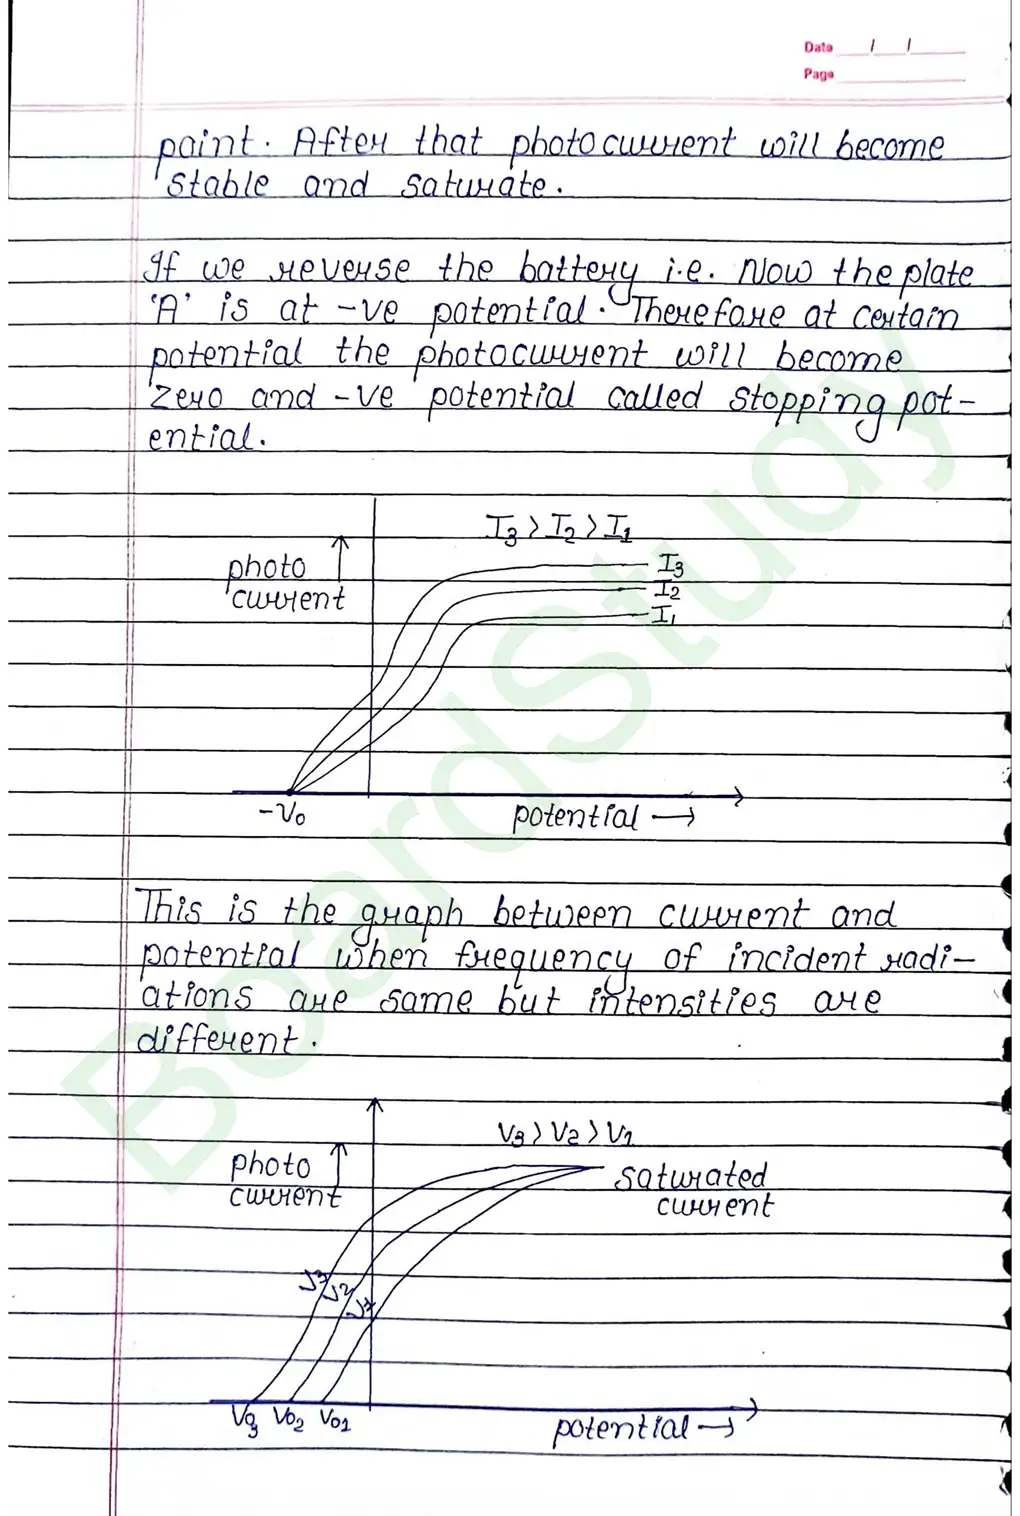 Date / /
Page
point. After that photocurrent will become
stable and saturate.
If we reverse the battery i.e. Now the plate
'A' is at -ve potential. Therefore at certain
potential the photocurrent will become
zero and -ve potential called stopping pot-
ential.
I3 > I2 > I1
photo
current
I3
I2
I1
-V0
potential →
This is the graph between current and
potential when frequency of incident radi-
ations are same but intensities are
different.
ν3 > ν2 > ν1
photo
current
saturated
current
ν3
ν2
ν1
V03 V02 V01
potential →
BoardStudy